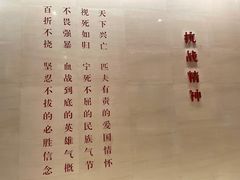 抗战精神
天下兴亡 匹夫有责的爱国情怀
视死如归 宁死不屈的民族气节
不畏强暴 血战到底的英雄气概
百折不挠 坚忍不拔的必胜信念